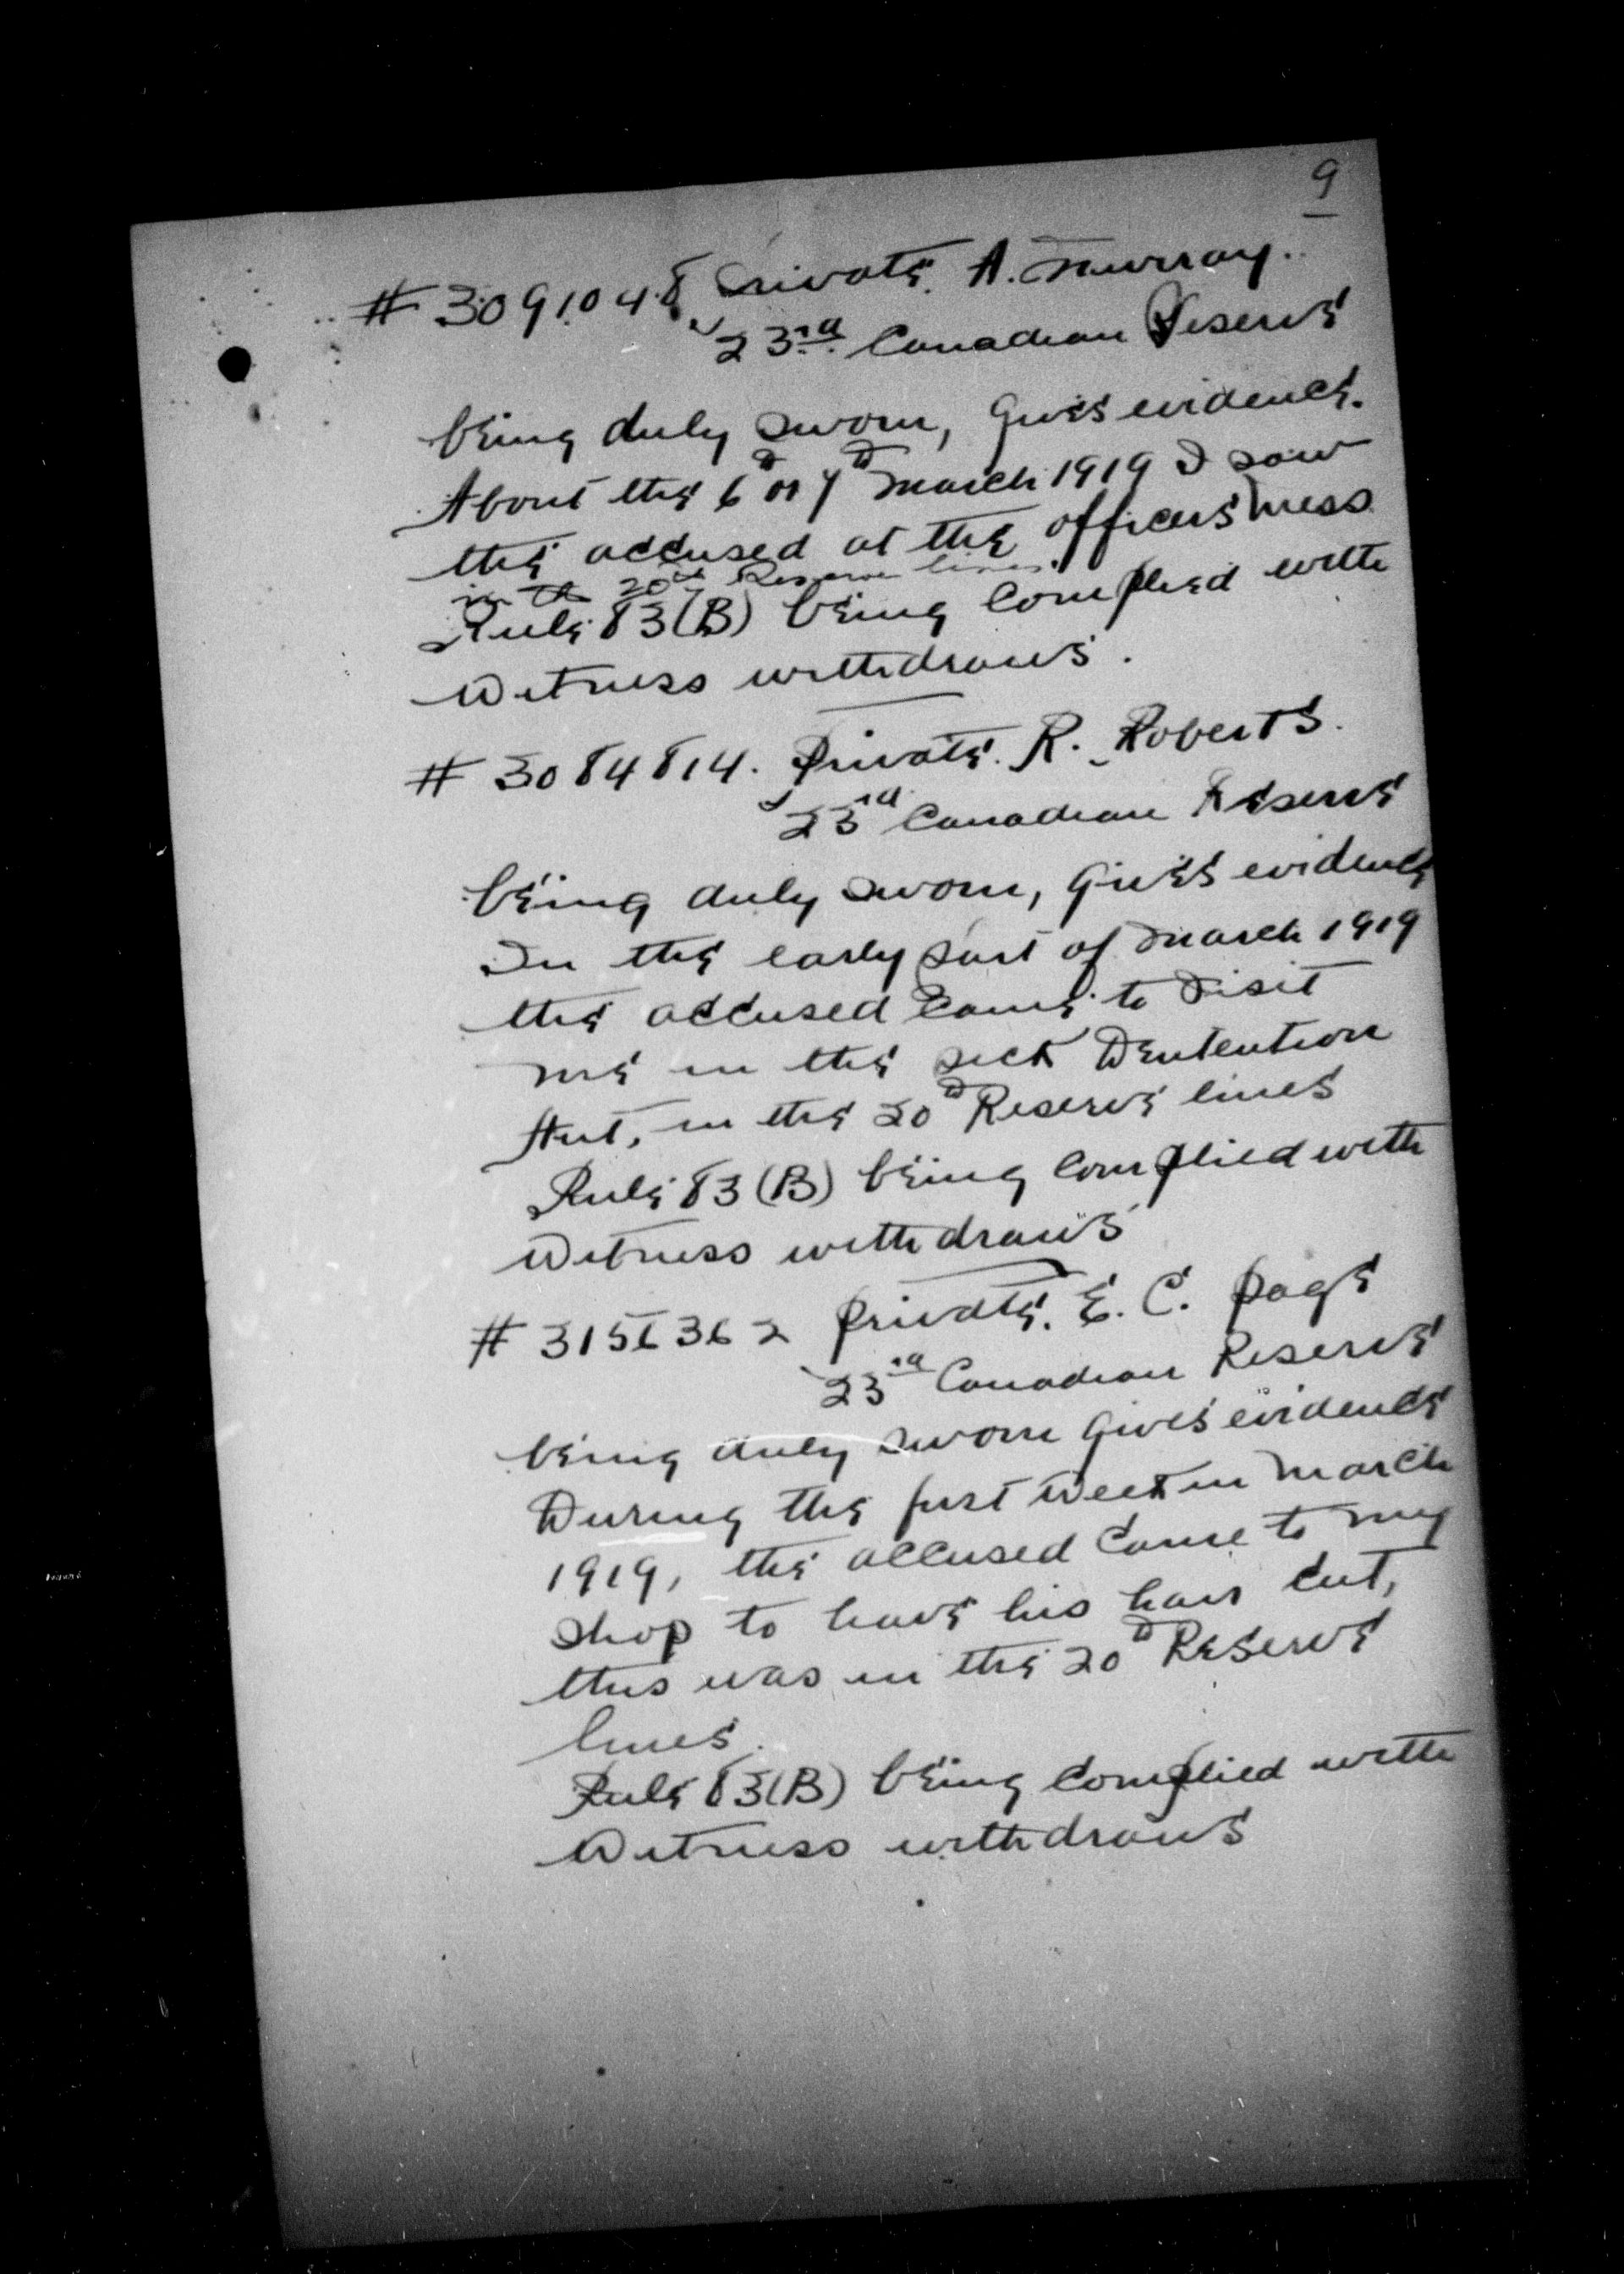 9
# 3091048 Private. A. Murray.
23rd Canadian Reserve
being duly sworn, gives evidence.
About the 6th or 7th March 1919 I saw
the accused at the officers mess
in the 20th Reserve lines.
Rule 83(B) being complied with
Witness withdraws.
# 3084814. Private. R. Roberts.
23rd Canadian Reserve
being duly sworn, gives evidence
In the early part of March 1919
the accused came to visit
me in the sick Dentention
Hut, in the 20th Reserve lines
Rule 83(B) being complied with
Witness withdraws
# 3156362 Private. E. C. Page
23rd Canadian Reserve
being duly sworn gives evidence
During the first week in March
1919, the accused came to my
shop to have his hair cut,
this was in the 20th Reserve
lines.
Rule 83(B) being complied with
Witness withdraws